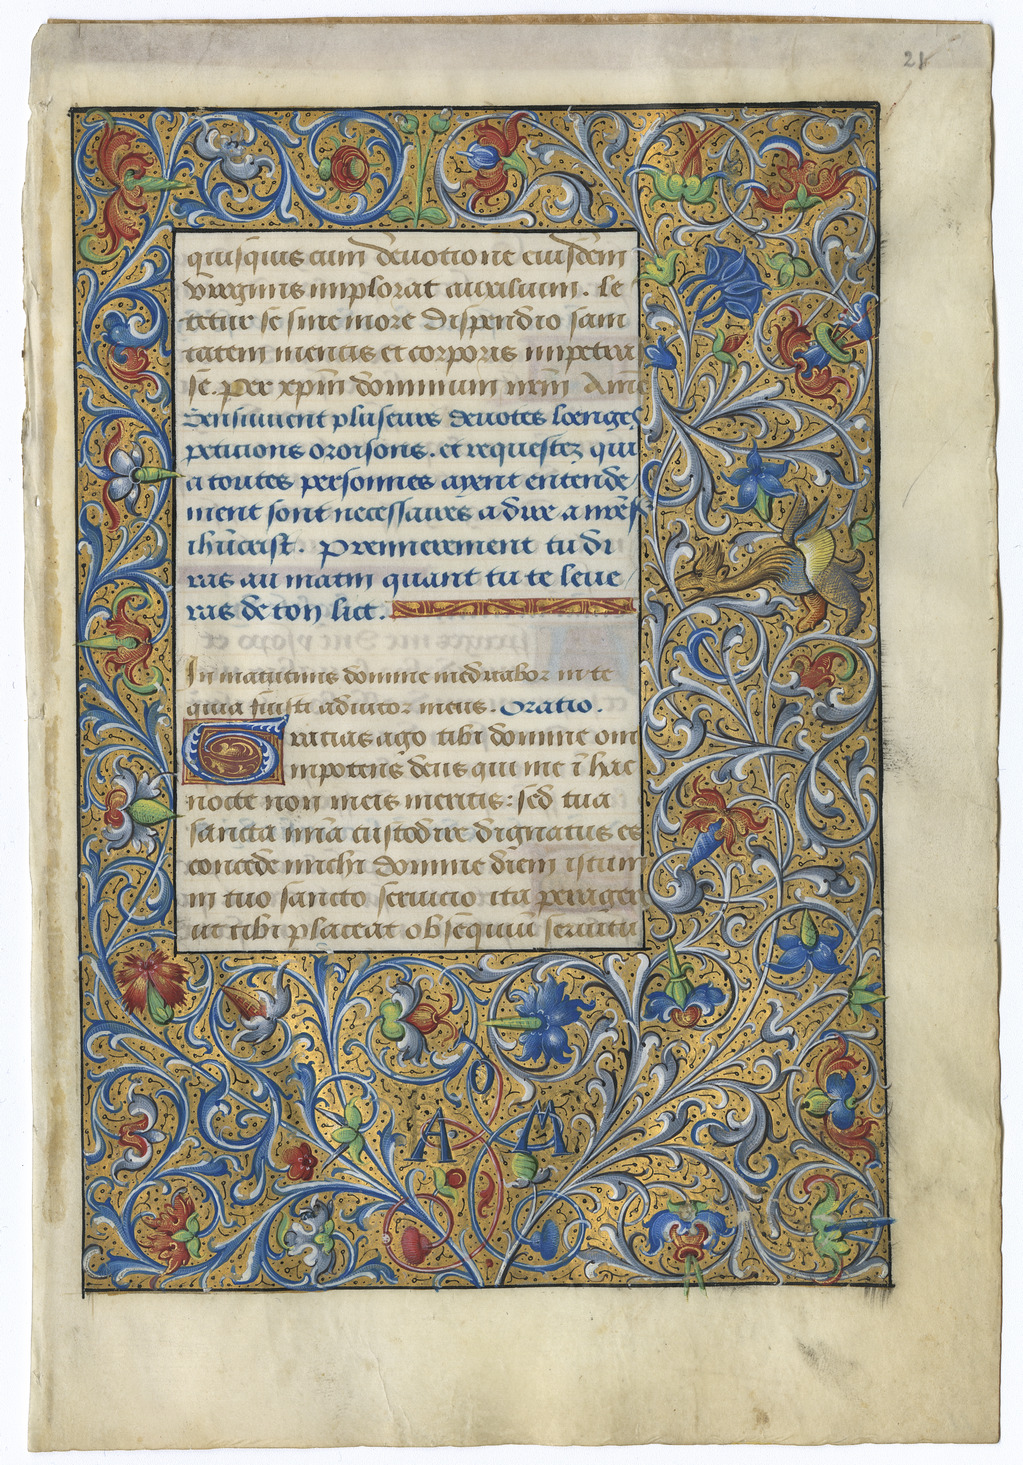 21
quisquis cum devotione eiusdem
virginis implorat auxilium. le
tetur se sine more dispendio sani
tatem mentis et corporis impetras
se. per xpm dominum nrm Ame
Sensuivent pluseurs devotes loenges
peticions oroisons. et requestez qui
a toutes personnes ayent entende
ment sont necessaires a dire a nres
ihucrist. Premierement tu di
ras au matin quant tu te leve
ras de ton lict.
In matutinis domine meditabor in te
quia fuisti adiutor meus. Oratio.
Gratias ago tibi domine om
nipotens deus qui me i hac
nocte non meis meritis: sed tua
sancta mia custodire dignatus es
concede michi domine diem istum
in tuo sancto servicio ita peragere
ut tibi placeat obsequiu servitu
A M